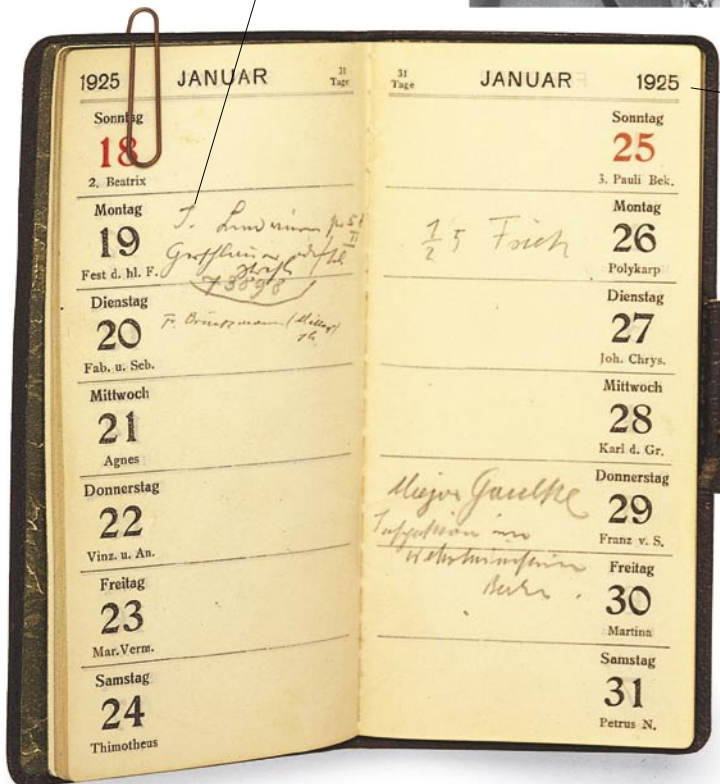 1925 JANUAR 31 Tage
Sonntag
18
2. Beatrix
Montag
19
Fest d. hl. F.
73898
Dienstag
20
Fab. u. Seb.
Fr. Bruckmann
Mittwoch
21
Agnes
Donnerstag
22
Vinz. u. An.
Freitag
23
Mar.Verm.
Samstag
24
Thimotheus
31 Tage JANUAR 1925
Sonntag
25
3. Pauli Bek.
Montag
26
Polykarp
1/2 5 Frick
Dienstag
27
Joh. Chrys.
Mittwoch
28
Karl d. Gr.
Donnerstag
29
Franz v. S.
Major Gaulke
Freitag
30
Martina
Samstag
31
Petrus N.